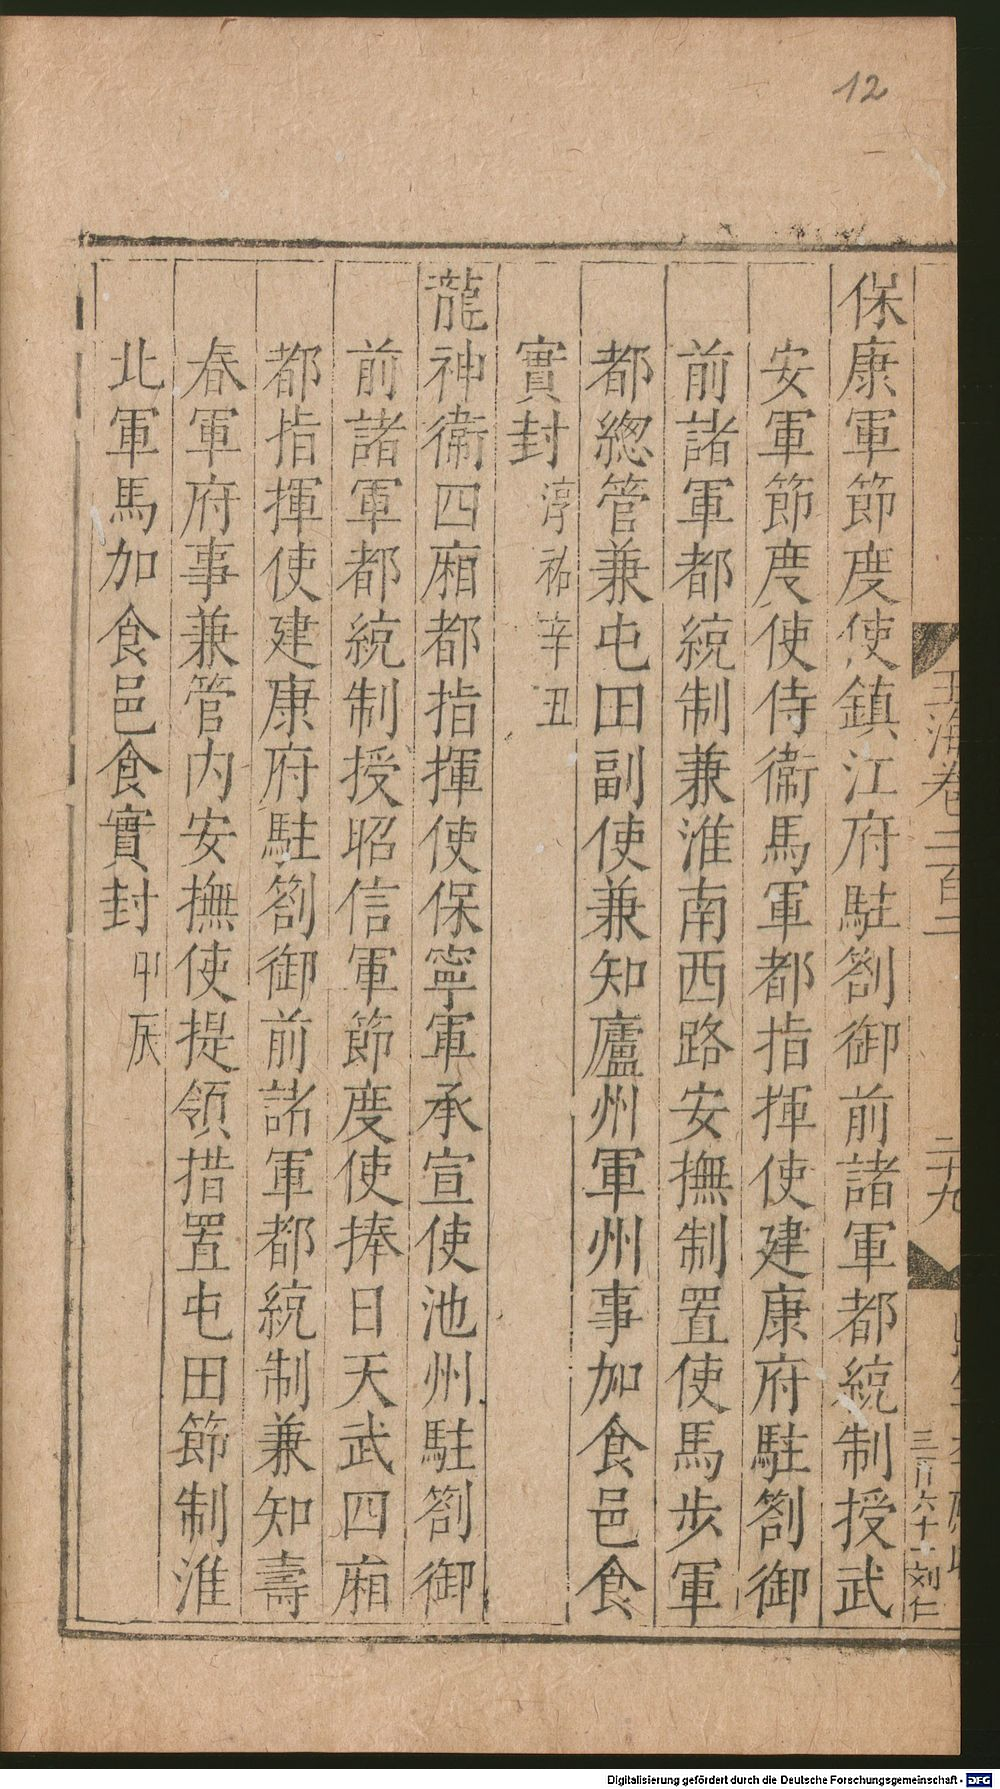 12
玉海卷二百二
二十九
三百六十 刘仁
保康軍節度使鎮江府駐劄御前諸軍都統制授武
安軍節度使侍衞馬軍都指揮使建康府駐劄御
前諸軍都統制兼淮南西路安撫制置使馬步軍
都緫管兼屯田副使兼知廬州軍州事加食邑食
實封淳祐辛丑
龍神衞四廂都指揮使保寧軍承宣使池州駐劄御
前諸軍都統制授昭信軍節度使捧日天武四廂
都指揮使建康府駐劄御前諸軍都統制兼知壽
春軍府事兼管内安撫使提領措置屯田節制淮
北軍馬加食邑食實封甲辰
Digitalisierung gefördert durch die Deutsche Forschungsgemeinschaft - DFG